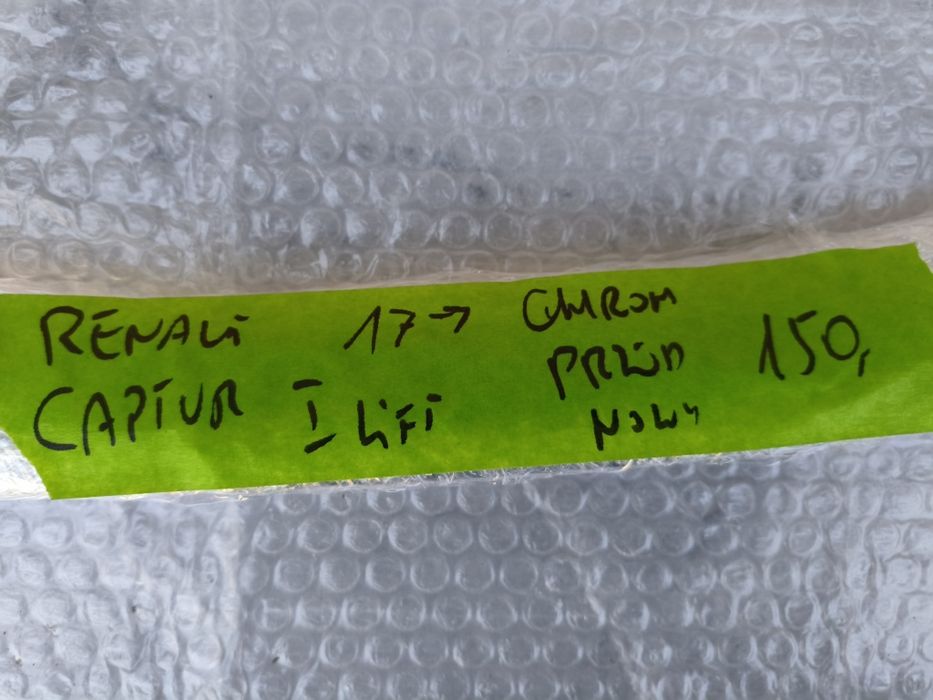 RENALT 17→ CHROM
CAPTUR I LIFT PRZÓD 150,
NOWY